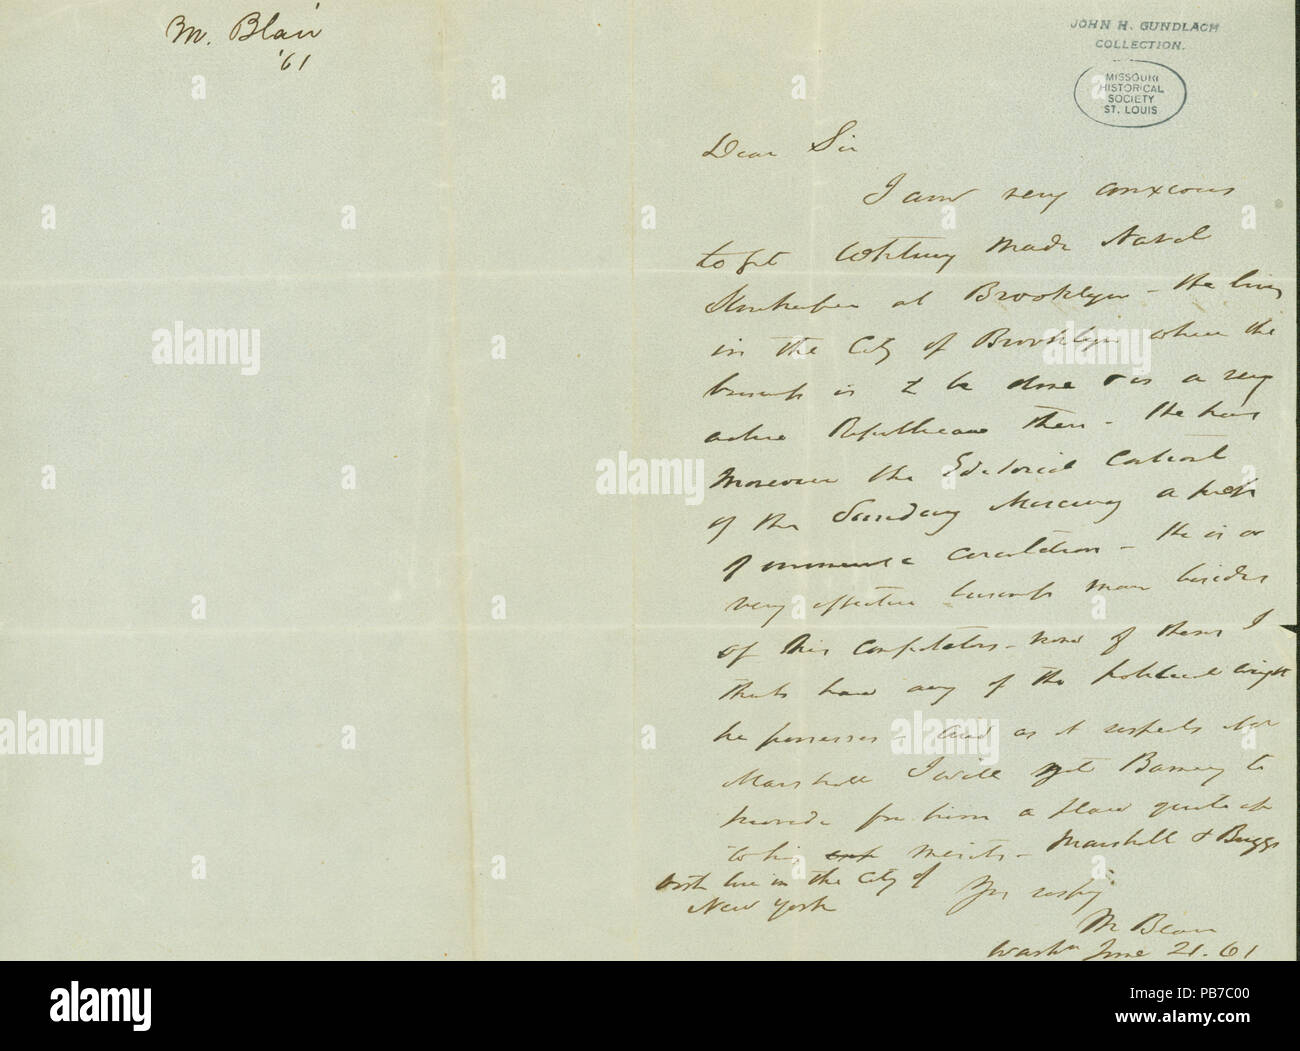 M. Blair
'61
JOHN H. GUNDLACH
COLLECTION.
MISSOURI
HISTORICAL
SOCIETY
ST. LOUIS
Dear Sir
I am very anxious
to get Whitney made Naval
Storekeeper at Brooklyn - He lives
in the City of Brooklyn where the
business is to be done & is a very
active Republican there - He has
moreover the Editorial Control
of the Sunday Mercury a paper
of immense circulation - He is a
very effective business man besides
of his competitors - none of them I
think have any of the political weight
he possesses - and as it respects Mr
Marshall I will get Barney to
provide for him a place quite up
to his merits - Marshall & Briggs
both live in the City of
New York
Yrs respy
M Blair
Washn June 21. 61
alamy
a
alamy
Image ID: PB7C00
www.alamy.com